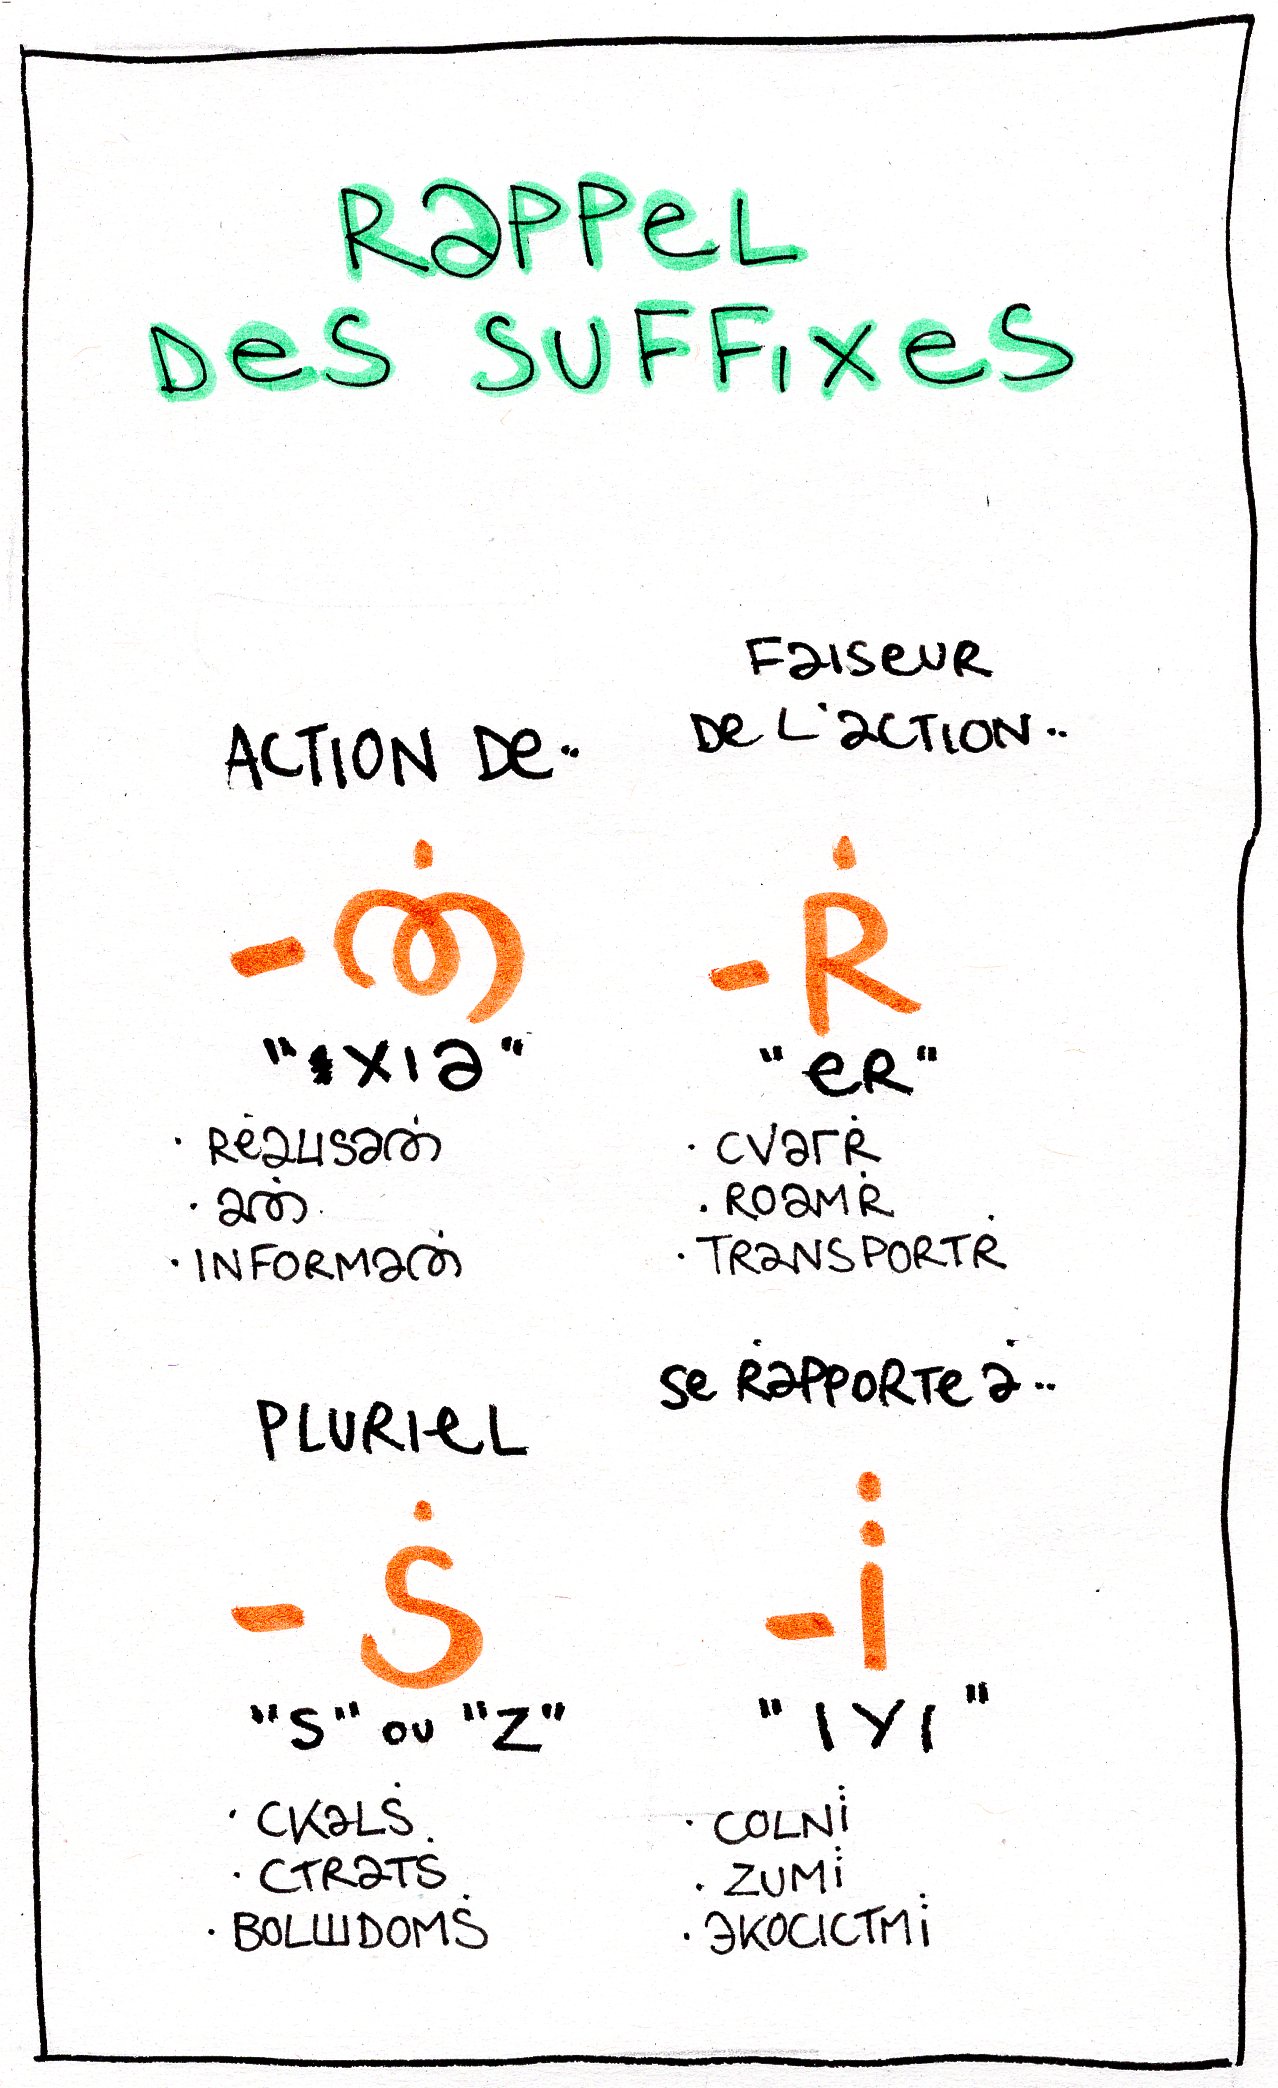 RappeL
Des suffixes
ACTION De..
-ന̇
"xıa"
· Rėaцsaന̇
· aന̇
· INFORMaന̇
FaıseuR
De L'action..
-Ṙ
"eR"
· CVaГṘ
· ROaMṘ
· TRaNSPORTṘ
PLURIeL
-Ṡ
"S" ou "Z"
· CKaLṠ
· CTRaTṠ
· BOLШDOMṠ
se RappoRTe à..
-i̇
"IYI"
· COLNi̇
· ZUMi̇
· ЭKOCICTMi̇